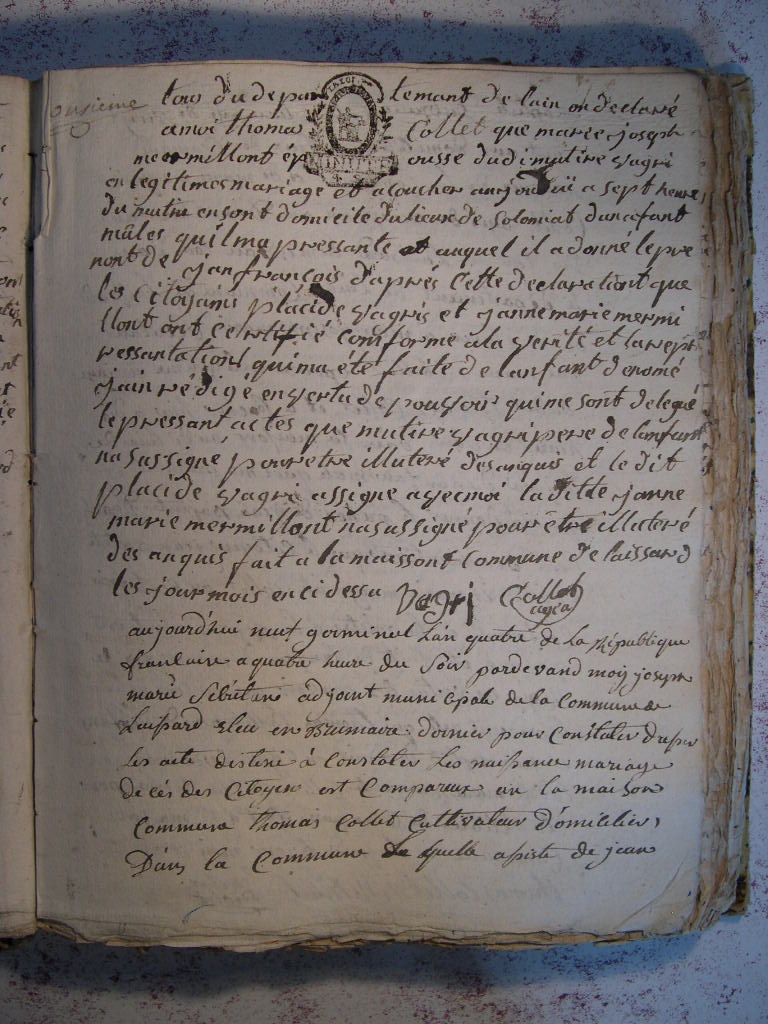 onsieme
tous du depar temant de lain on declaré
a moi thomas Collet que marie joseph
mermillont ép ousse dudi mutire vagri
en legitimes mariage et a coucher aujourduï a sept heures
du mutin en sont domicile du lieux de Solomiat dun enfant
mâles quil ma pressante et auquel il a donné le pre
nont de jan françois d'aprés Cette declarationt que
les Citoyains plácide vagris et janne marie mermi
llont ont Certifié Comforme a la verité et la repr
ressantationt qui ma été faite de lanfant denomé
jain rédigé en vertu dé pouvoir qui me sont delegué
le pressant actes que mutire vagri pere de lanfant
na sassigné pour etre illuteré des anquis et le dit
placide vagri assigne avec moi la ditte janne
marie mermillont na sassigné pour être illuteré
des anquis fait a la maissont Commune de laissard
les jour mois en ci dessu Vagri Collet
agea
aujourdhui neuf germinal L'an quatre de La République
francaise a quatre heure du Soir pardevand moy joseph
marie Sébélin adjoint municipale de la Commune de
Laissard eleu en Brumaire dernier pour Constater
les acte destiné à Constater Les naissance mariage
décés des Citoyen est Comparue en la maison
Commune thomas Collet Cultivateur D'omicilier
Dans la Commune de quelle asisté de jean
LA LOI